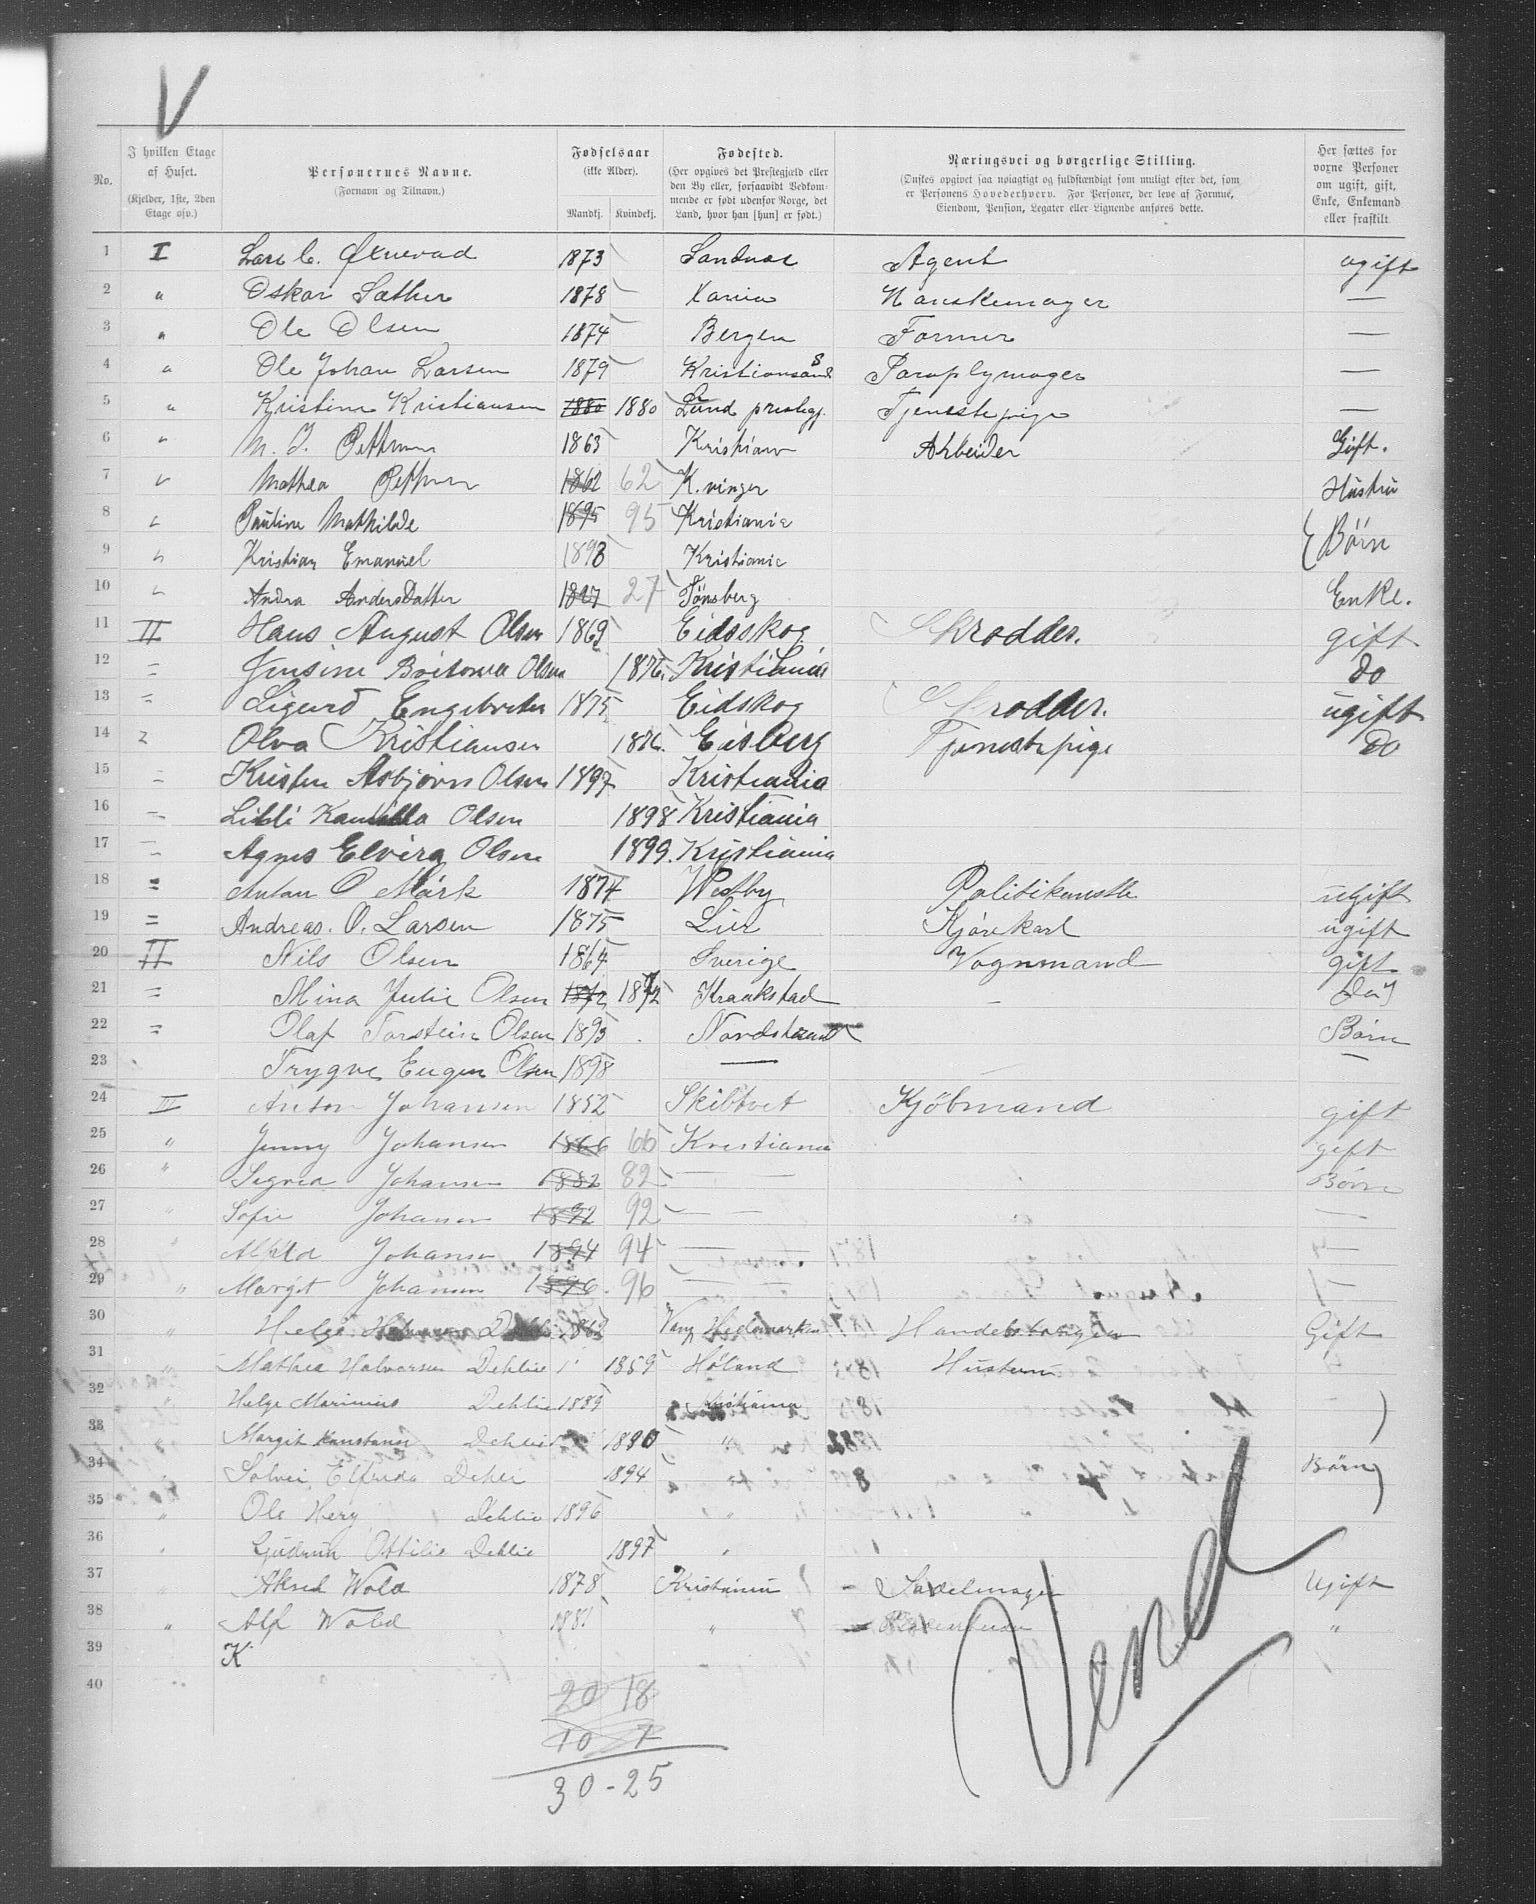 V
No.
I hvilken Etage af Huset. (Kjelder, 1ste, 2den Etage osv.)
Personernes Navne. (Fornavn og Tilnavn.)
Fødselsaar (ikke Alder). Mandkj. Kvindekj.
Fødested. (Her opgives det Prestegjæld eller den By eller, forsaavidt Vedkommende er født udenfor Norge, det Land, hvor han [hun] er født.)
Næringsvei og borgerlige Stilling. (Ønskes opgivet saa nøiagtigt og fuldstændigt som muligt efter det, som er Personens Hovederhverv. For Personer, der leve af Formue, Eiendom, Pension, Legater eller Lignende anføres dette.
Her sættes for voxne Personer om ugift, gift, Enke, Enkemand eller fraskilt
1 I Lars C. Øxnevad 1873 Sandnæs Agent ugift
2 " Oskar Sæther 1878 Xania Hanskemager —
3 " Ole Olsen 1874 Bergen Former —
4 " Ole Johan Larsen 1879 Kristiansand S Paraplymager —
5 " Kristine Kristiansen 1880 1880 Lund prestegj. Tjenestepige —
6 " M. J. Pettersen 1863 Kristiania Arbeider Gift.
7 " Mathea Pettersen 1862 62 K.vinger Hustru
8 " Pauline Mathilde 1895 95 Kristiania { Børn
9 " Kristian Emanuel 1898 Kristiania
10 " Andra Andersdatter 1827 27 Tönsberg Enke.
11 II Hans August Olsen 1869 Eidsskog Skrædder. gift
12 " Jensine Olsen 1876 Kristiania do
13 " Sigurd Engebretsen 1875 Eidskog Skrædder. ugift
14 " Olva Kristiansen 1876. Eisberg Tjenestepige do
15 " Kristen Asbjörn Olsen 1897 Kristiania
16 " Lilli Kamilla Olsen 1898 Kristiania
17 " Agnes Elvira Olsen 1899. Kristiania
18 " Anton O Mörk 1874 Westby Politikonstb ugift
19 " Andreas. O. Larsen 1875 Lier Kjørekarl ugift
20 II Nils Olsen 1864 Sverige Vognmand gift
21 " Mina Julie Olsen 1872 1872 Kraakstad — do
22 " Olaf Torstein Olsen 1893 Nordstrand Börn
23 Trygve Eugen Olsen 1898 — —
24 III Anton Johansen 1852 Skibtvet Kjöbmand gift
25 " Jenny Johansen 1866 66 Kristiania gift
26 " Sigrid Johansen 1882 82 — — Børn
27 " Sofie Johansen 1892 92 — — —
28 " Alfild Johansen 1894 94 — — —
29 " Margit Johansen 1896 96 — —
30 " Helge 1862 Vang Hedemarken Handelsborger Gift
31 " Mathea Halvorsen Dehlie 1859 Høland Hustru
32 " Helge Marinius Dehlie 1889 Kristiania )
33 " Margit Konstance Dehlie 1890 "
34 " Solvei Elfrida Dehli 1894 Børn )
35 " Ole Dehlie 1896 "
36 " Gudrun Ottilie Dehlie 1897 "
37 " Aksel Wold 1878 Kristiania — Sadelmager Ugift
38 " Alf Wold 1881 " "
39 K
40
20 18
10 7
30 - 25
Vend